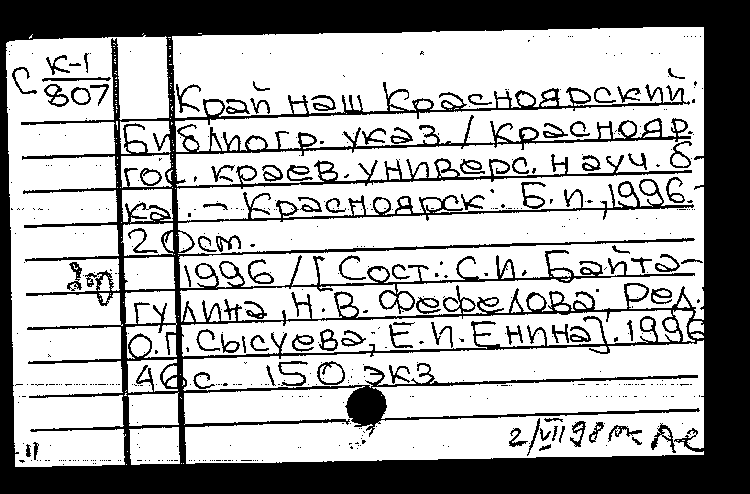 С К-1
807
Край наш Красноярский:
Библиогр. указ. / Краснояр.
гос. краев. универс. науч. б-
ка. – Красноярск: Б. и., 1996.-
20 cm.
1996 / [Сост.: С.И. Байта-
гулина, Н.В. Фефелова; Ред.:
О.Г. Сысуева, Е.И. Енина]. 1996
46 с. 150 экз
2/VII 98
11